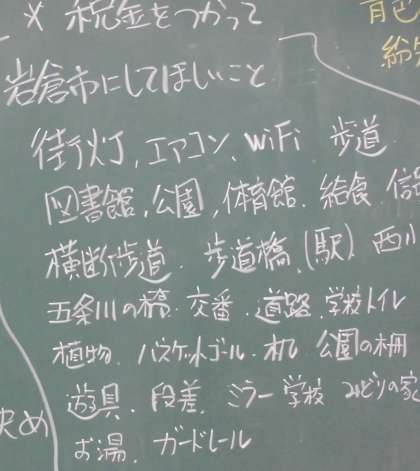 ※ 税金をつかって
岩倉市にしてほしいこと
街灯、エアコン、WiFi 歩道
図書館、公園、体育館、給食、信
横断歩道、歩道橋、(駅) 西川
五条川の橋、交番、道路、学校トイレ
植物、バスケットゴール、机、公園の柵
遊具、段差、ミラー 学校 みどりの家
お湯、ガードレール
決め